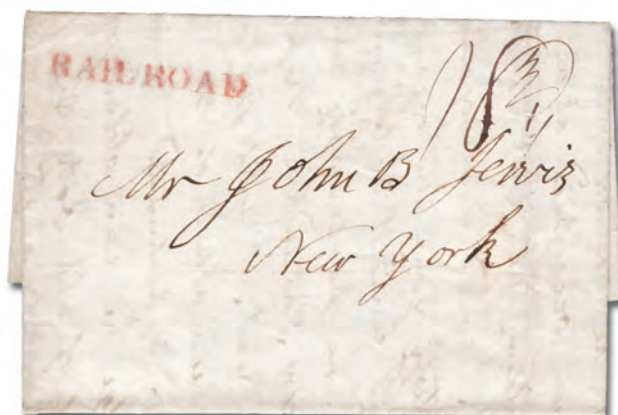 RAILROAD
18¾
Mr John B Jervis
New York